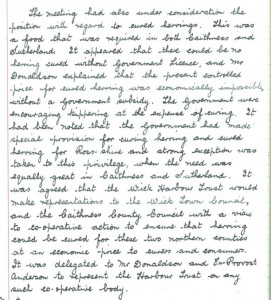 The meeting had also under consideration the
position with regard to cured herrings. This was
a food that was required in both Caithness and
Sutherland. It appeared that there could be no
herring cured without Government Licence, and Mr
Donaldson explained that the present controlled
price for cured herring was economically impossible
without a Government subsidy. The Government were
encouraging kippering at the expense of curing. It
had been noted that the Government had made
special provision for curing herring and cured
herring for Ross-shire and strong exception was
taken to this privilege, when the need was
equally great in Caithness and Sutherland. It
was agreed that the Wick Harbour Trust would
make representations to the Wick Town Council,
and the Caithness County Council with a view
to co-operative action to ensure that herring
could be cured for these two northern counties
at an economic price to curers and consumers.
It was delegated to Mr Donaldson and Ex-Provost
Anderson to represent the Harbour Trust on any
such co-operative body.